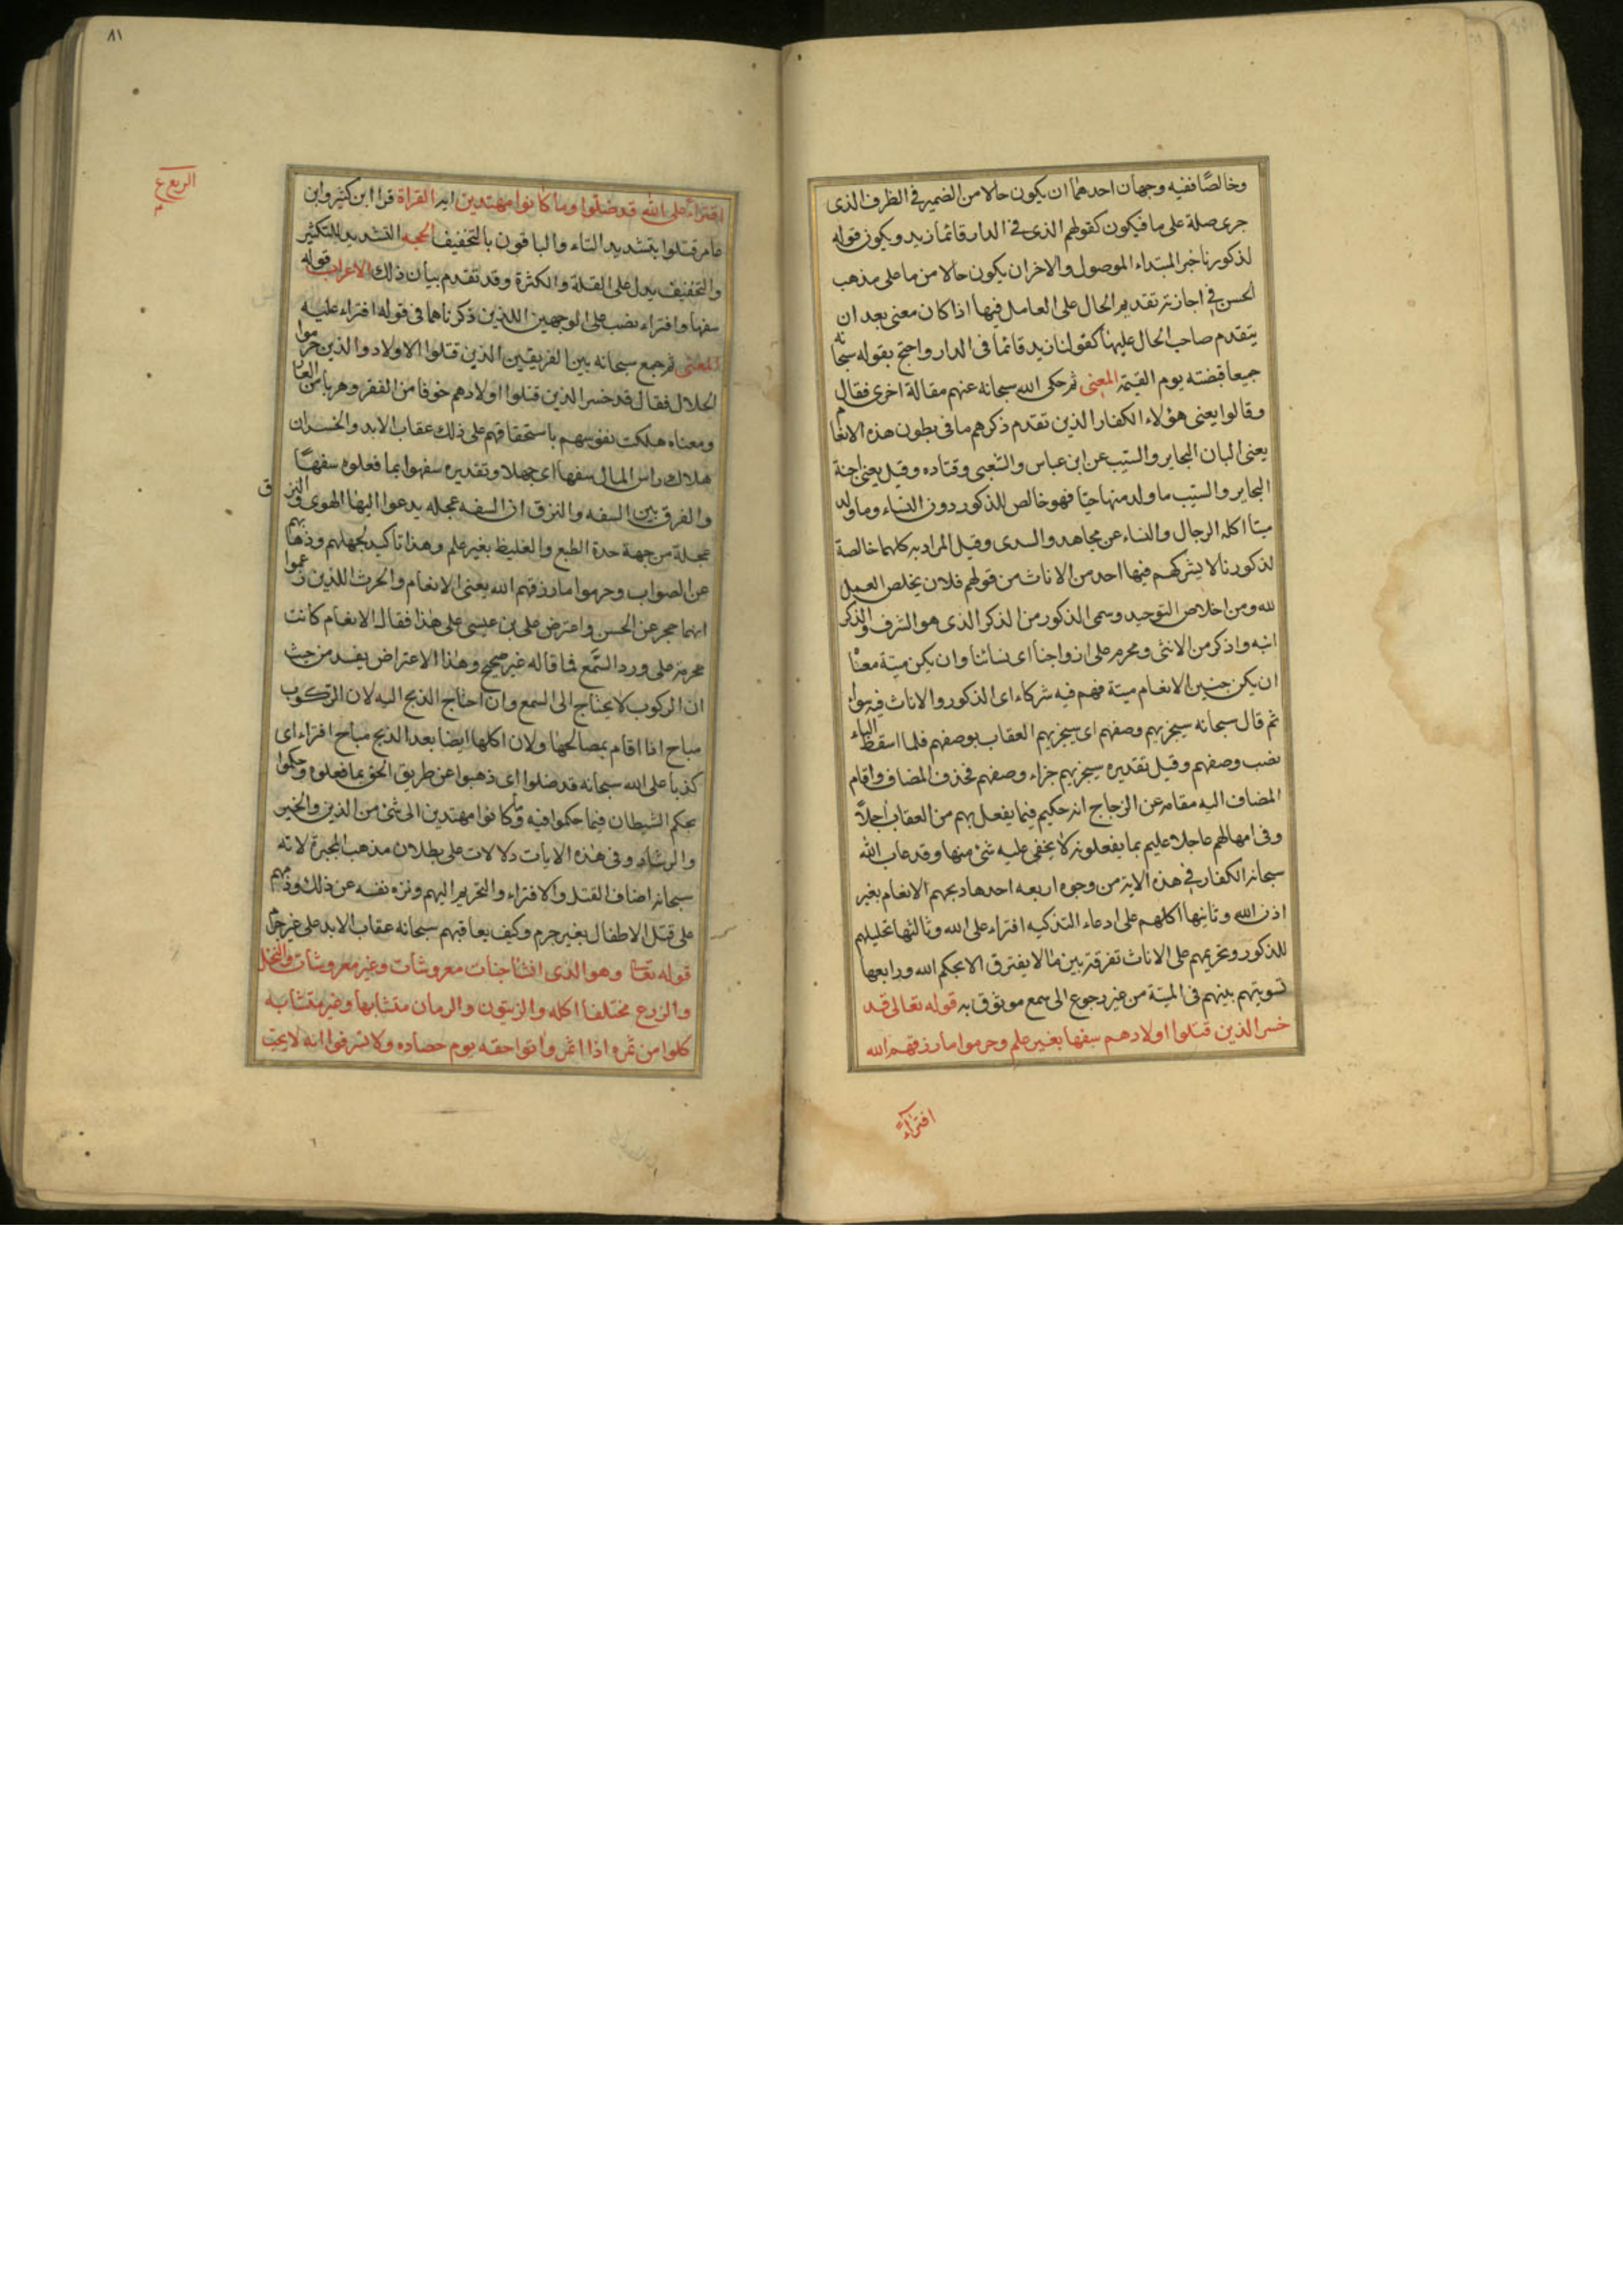 وخالصًا ففيه وجهان احدهما ان يكون حالا من الضمير في الظرف الذى
جرى صلة على ما فيكون كقولهم الذى في الدار قائما زيد ويكون قوله
لذكورنا خبر المبتداء الموصول والاخر ان يكون حالا من ما على مذهب
الحسن في اجازته تقديم الحال على العامل فيها اذا كان معنى بعد ان
يتقدم صاحب الحال عليها كقولنا زيد قائما فى الدار واحتج بقوله سبحانه
جميعا قبضته يوم القيمة المعنى ثم حكى الله سبحانه عنهم مقالة اخرى فقال
وقالوا يعنى هؤلاء الكفار الذين تقدم ذكرهم ما فى بطون هذه الانعام
يعنى البان البحاير والسيب عن ابن عباس والشعبى وقتاده وقيل يعنى اجنة
البحاير والسيب ما ولد منها حيا فهو خالص للذكور دون النساء وما ولد
ميتا اكله الرجال والنساء عن مجاهد والسدى وقيل المراد به كلهما خالصة
لذكورنا لا يشركهم فيها احد من الاناث من قولهم فلان يخلص العمل
لله ومن اخلاص التوحيد وسمى الذكور من الذكر الذى هو الشرف والذكر
انبه واذكر من الانثى ومحرم على ازواجنا اى نسائنا وان يكن ميتة معناه
ان يكن جنين الانعام ميتة فهم فيه شركاء اى الذكور والاناث فيه سواء
ثم قال سبحانه سيجزيهم وصفهم اى سيجزيهم العقاب بوصفهم فلما اسقط الباء
نصب وصفهم وقيل تقديره سيجزيهم جزاء وصفهم فحذف المضاف واقام
المضاف اليه مقامه عن الزجاج انه حكيم فيما يفعل بهم من العقاب اجلاً
وفى امهالهم عاجلا عليم بما يفعلونه لا يخفى عليه شئ منها وقد عاب الله
سبحانه الكفار في هذه الاية من وجوه اربعه احدها ذبحهم الانعام بغير
اذن الله وثانيها اكلهم على ادعاء التذكيه افتراء على الله وثالثها تحليلهم
للذكور وتحريمهم على الاناث تفرقة بين ما لا يفترق الا بحكم الله ورابعها
تسويتهم بينهم فى الميتة من غير رجوع الى سمع موثوق به قوله تعالى قد
خسر الذين قتلوا اولادهم سفها بغير علم وحرموا ما رزقهم الله
افتراءً
٨١
الربع
افتراءً على الله قد ضلوا وما كانوا مهتدين اية القراة قرا ابن كثير وابن
عامر قتلوا بتشديد التاء والباقون بالتخفيف الحجه التشديد للتكثير
والتخفيف يدل على القلة والكثرة وقد تقدم بيان ذلك الاعراب قوله
سفها وافتراء نصب على الوجهين اللذين ذكرناهما فى قوله افتراء عليه
المعنى ثم جمع سبحانه بين الفريقين الذين قتلوا الاولاد والذين حرموا
الحلال فقال قد خسر الذين قتلوا اولادهم خوفا من الفقر وهربا من العار
ومعناه هلكت نفوسهم باستحقاقهم على ذلك عقاب الابد والخسران
هلاك راس المال سفها اى جهلا وتقديره سفهوا بما فعلوه سفهًا
والفرق بين السفه والنزق ان السفه عجله يدعوا اليها الهوى والنزق
عجلة من جهة حدة الطبع والغليظ بغير علم وهذا تاكيد لجهلهم وذهابهم
عن الصواب وحرموا ما رزقهم الله يعنى الانعام والحرث اللذين زعموا
انهما حجر عن الحسن واعترض على بن عيسى على هذا فقال الانعام كانت
محرمة حتى ورد السمع فما قاله غير صحيح وهذا الاعتراض يفسد من حيث
ان الركوب لا يحتاج الى السمع وان احتاج الذبح اليه لان الركوب
مباح اذا اقام بمصالحها ولان اكلها ايضا بعد الذبح مباح افتراء اى
كذبا على الله سبحانه قد ضلوا اى ذهبوا عن طريق الحق بما فعلوه وحكموا
بحكم الشيطان فيما حكموا فيه وما كانوا مهتدين الى شئ من الدين والخير
والرشاد وفى هذه الايات دلالات على بطلان مذهب المجبرة لانه
سبحانه اضاف القتل والافتراء والتحريم اليهم ونزه نفسه عن ذلك وذمهم
على قتل الاطفال بغير جرم وكيف يعاقبهم سبحانه عقاب الابد على غير جرم
قوله تعا وهو الذى انشا جنات معروشات وغير معروشات والنخل
والزرع مختلفا اكله والزيتون والرمان متشابها وغير متشابه
كلوا من ثمره اذا اثمر واتوا حقه يوم حصاده ولا تسرفوا انه لا يحب